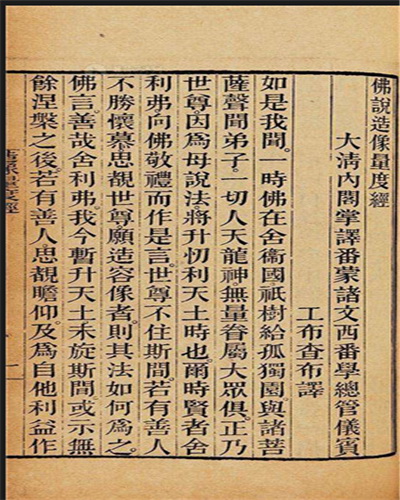 佛說造像量度經
大清內閣掌譯番蒙諸文西番學總管儀賓
工布查布譯
如是我聞。一時佛在舍衞國祇樹給孤獨園與諸菩
薩聲聞弟子。一切人天龍神。無量眷屬大眾俱。正乃
世尊因爲母說法將升忉利天土時也爾時賢者舍
利弗向佛敬禮而作是言。世尊不住斯間。若有善人
不勝懷慕思覩世尊願造容像者。則其法如何爲之。
佛言善哉舍利弗我今暫升天土未旋斯間或示無
餘涅槃之後。若有善人思覩瞻仰。及爲自他利益作